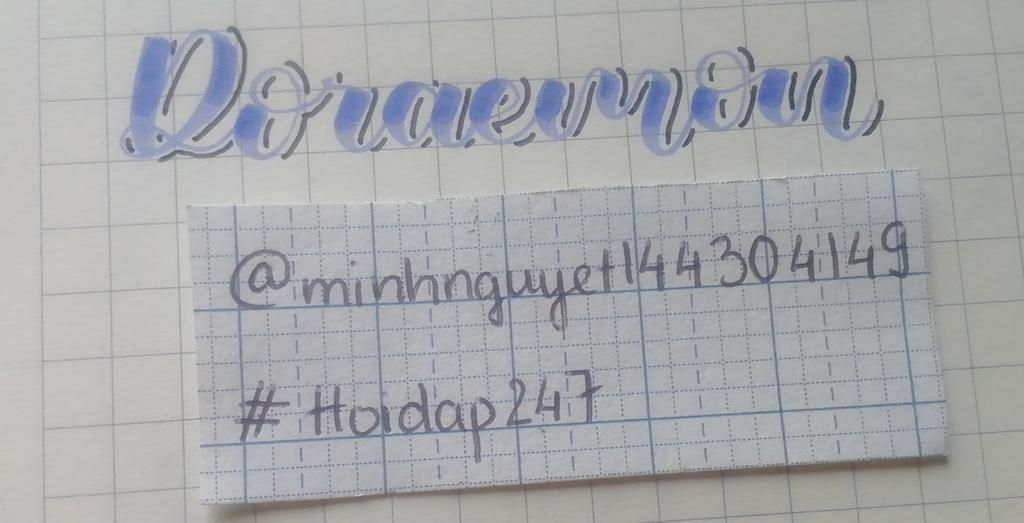 Doraemon
@minhnguyet144304149
# Hoidap247